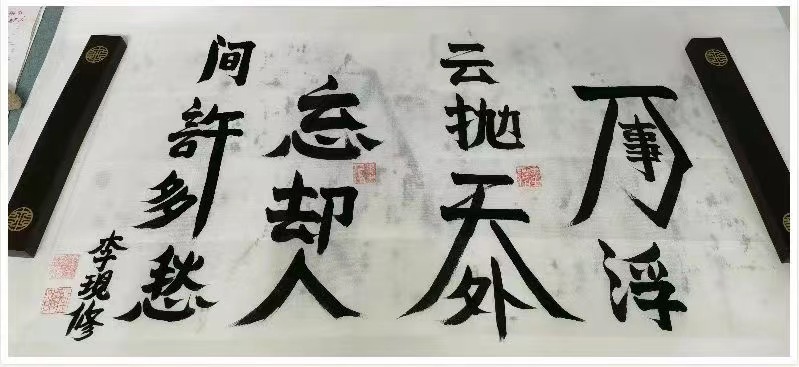 万事浮
云抛天外
忘却人
间許多愁
李現修